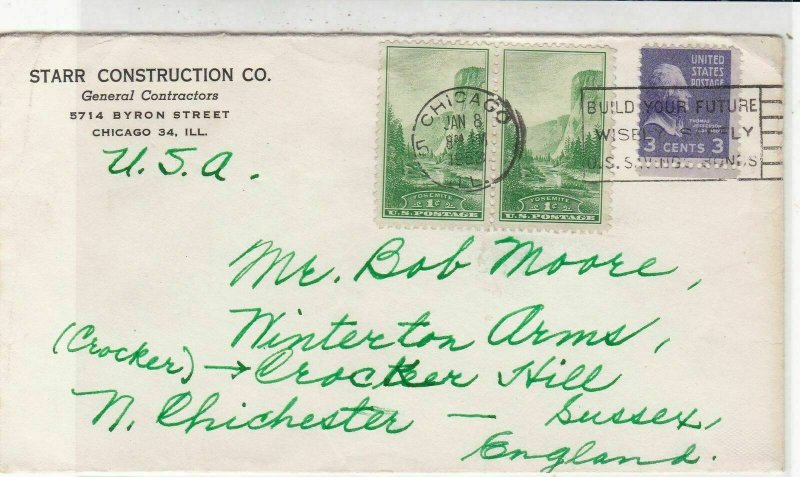 STARR CONSTRUCTION CO.
General Contractors
5714 BYRON STREET
CHICAGO 34, ILL.
U.S.A.
CHICAGO
JAN 8
ILL.
YOSEMITE
1¢
U.S. POSTAGE
YOSEMITE
1¢
U.S. POSTAGE
UNITED
STATES
POSTAGE
THOMAS
JEFFERSON
3 CENTS 3
BUILD YOUR FUTURE
WISELY
U.S. SAVINGS BONDS
Mr. Bob Moore,
Winterton Arms,
(Crocker) → Crocker Hill
N. Chichester — Sussex,
England.